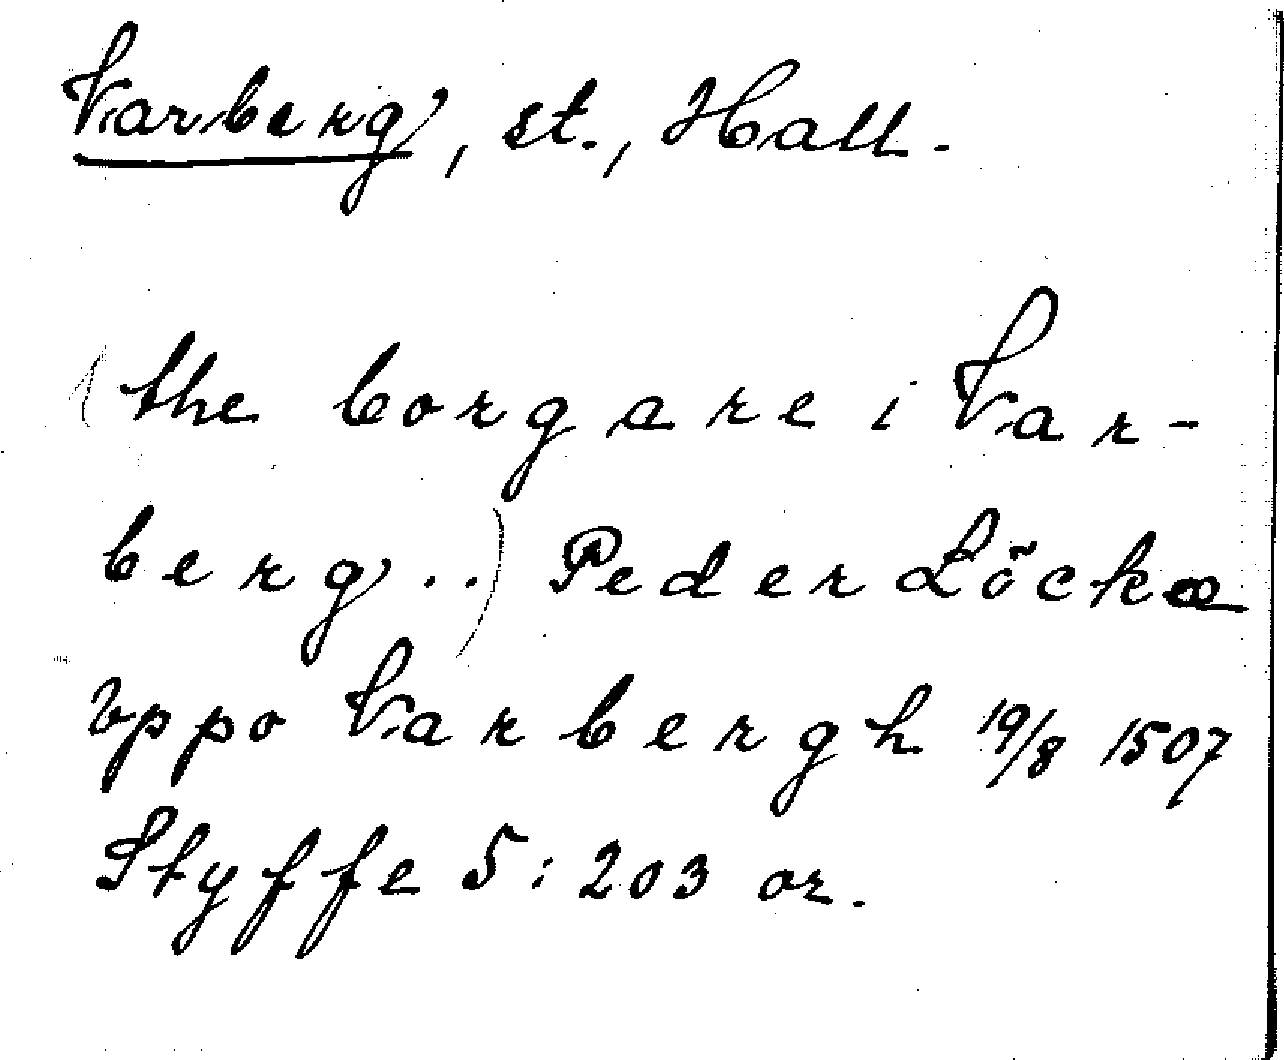 Varberg, st., Hall.
(the borgare i Var-
berg..) Peder Löcke
vppo Varbergh 19/8 1507
Styffe 5:203 or.